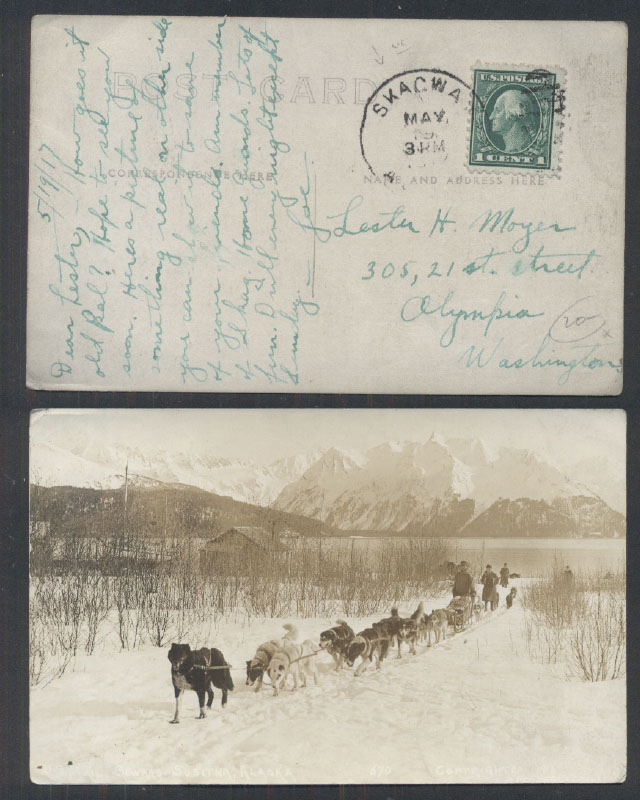 POST CARD
CORRESPONDENCE HERE
NAME AND ADDRESS HERE
SKAGWA
MAY
3 PM
U.S. POSTAGE
1 CENT 1
5/19/17
Dear Lester, How goes it
old Pal? Hope to see you
soon. Here's a picture of
something real on other side
you can show it to some
of your friends. Am member
of Skag. Home Guards. Lots of
fun. Drill every night except
Sunday — Joe.
Lester H. Moyer
305, 21st. street
Olympia
Washington
20
SEWARD SUSITNA, ALASKA
670